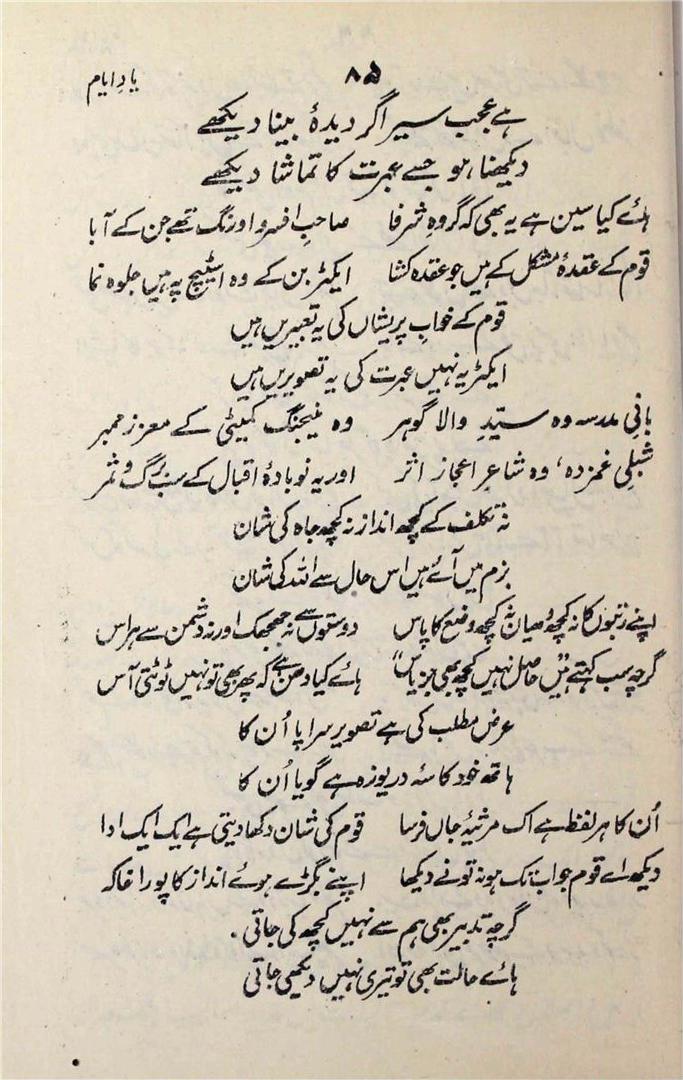 ۸۵
یادِ ایام
ہے عجب سیر اگر دیدۂ بینا دیکھے
دیکھنا ہو جسے عبرت کا تماشا دیکھے
ہائے کیا سین ہے یہ بھی کہ گروہِ شرفا صاحبِ افسر و اورنگ تھے جن کے آبا
قوم کے عقدۂ مشکل کے ہیں جو عقدہ کشا ایکٹر بن کے وہ اسٹیج پہ ہیں جلوہ نما
قوم کے خوابِ پریشاں کی یہ تعبیریں ہیں
ایکٹر یہ نہیں عبرت کی یہ تصویریں ہیں
بانیِ مدرسہ وہ سیّدِ والا گوہر وہ منیجنگ کمیٹی کے معزز ممبر
شبلیِ غمزدہ، وہ شاعرِ اعجاز اثر اور یہ نوبادۂ اقبال کے سب برگ و ثمر
نہ تکلف کے کچھ انداز نہ کچھ جاہ کی شان
بزم میں آئے ہیں اس حال سے اللہ کی شان
اپنے رتبوں کا نہ کچھ دھیان نہ کچھ وضع کا پاس دوستوں سے نہ جھجھک اور نہ دشمن سے ہراس
گرچہ سب کہتے ہیں ”حاصل نہیں کچھ بھی جز یاس“ ہائے کیا دھن ہے کہ پھر بھی تو نہیں ٹوٹتی آس
عرضِ مطلب کی ہے تصویر سراپا اُن کا
ہاتھ خود کاسۂ دریوزہ ہے گویا اُن کا
اُن کا ہر لفظ ہے اک مرثیۂ جاں فرسا قوم کی شان دکھا دیتی ہے ایک ایک ادا
دیکھ اے قوم جو اب تک ہو نہ تو نے دیکھا اپنے بگڑے ہوئے انداز کا پورا خاکہ
گرچہ تدبیر بھی ہم سے نہیں کچھ کی جاتی .
ہائے حالت بھی تو تیری نہیں دیکھی جاتی